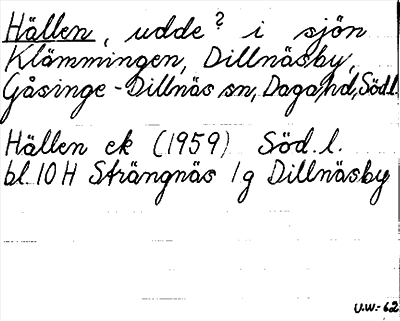 Hällen, udde? i sjön
Klämmingen, Dillnäsby,
Gåsinge-Dillnäs sn, Daga hd, Södl.
Hällen ek (1959) Söd.l.
bl. 10 H Strängnäs 1g Dillnäsby
U.W.-62